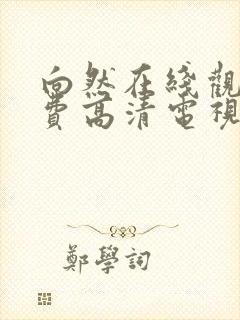 向然在线觀
費高清電視
鄭學詞